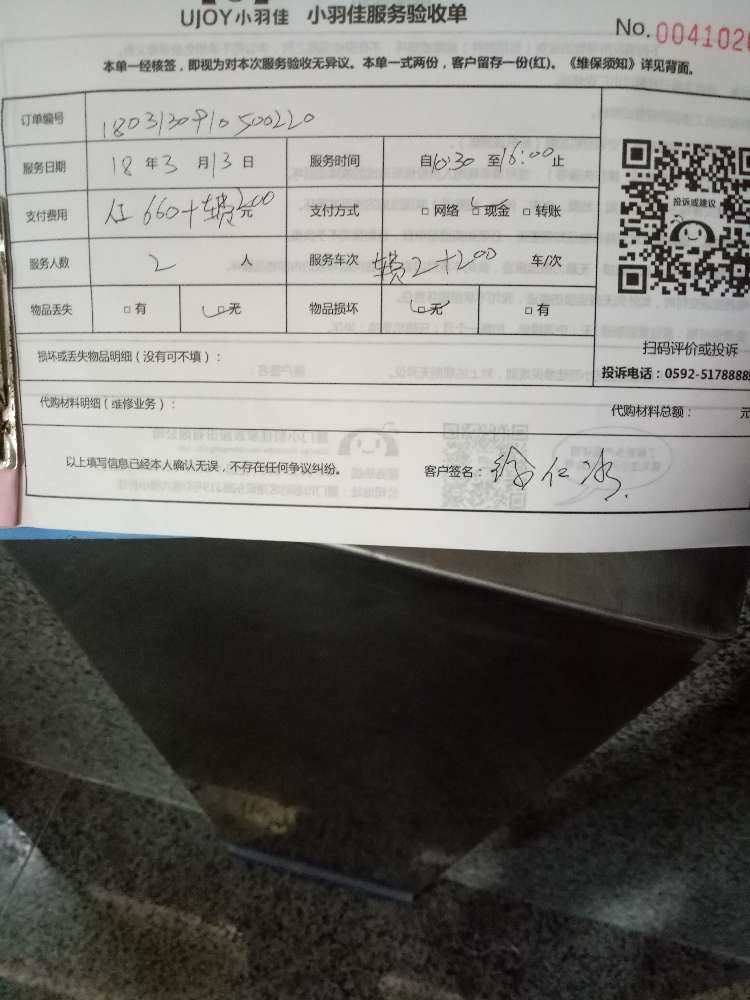 UJOY小羽佳 小羽佳服务验收单
No. 0041020
本单一经核签，即视为对本次服务验收无异议。本单一式两份，客户留存一份(红)。《维保须知》详见背面。
订单编号 1803130910500220
服务日期 18 年 3 月 13 日 服务时间 自10:30 至16:00止
支付费用 人工 660+车费200元 支付方式 □ 网络 □ 现金 □ 转账
投诉或建议
服务人数 2 人 服务车次 车费2+200 车/次
物品丢失 □ 有 □ 无 物品损坏 □ 无 □ 有
扫码评价或投诉
损坏或丢失物品明细（没有可不填）：
投诉电话：0592-5178888
代购材料明细（维修业务）：
代购材料总额： 元
以上填写信息已经本人确认无误，不存在任何争议纠纷。 客户签名：